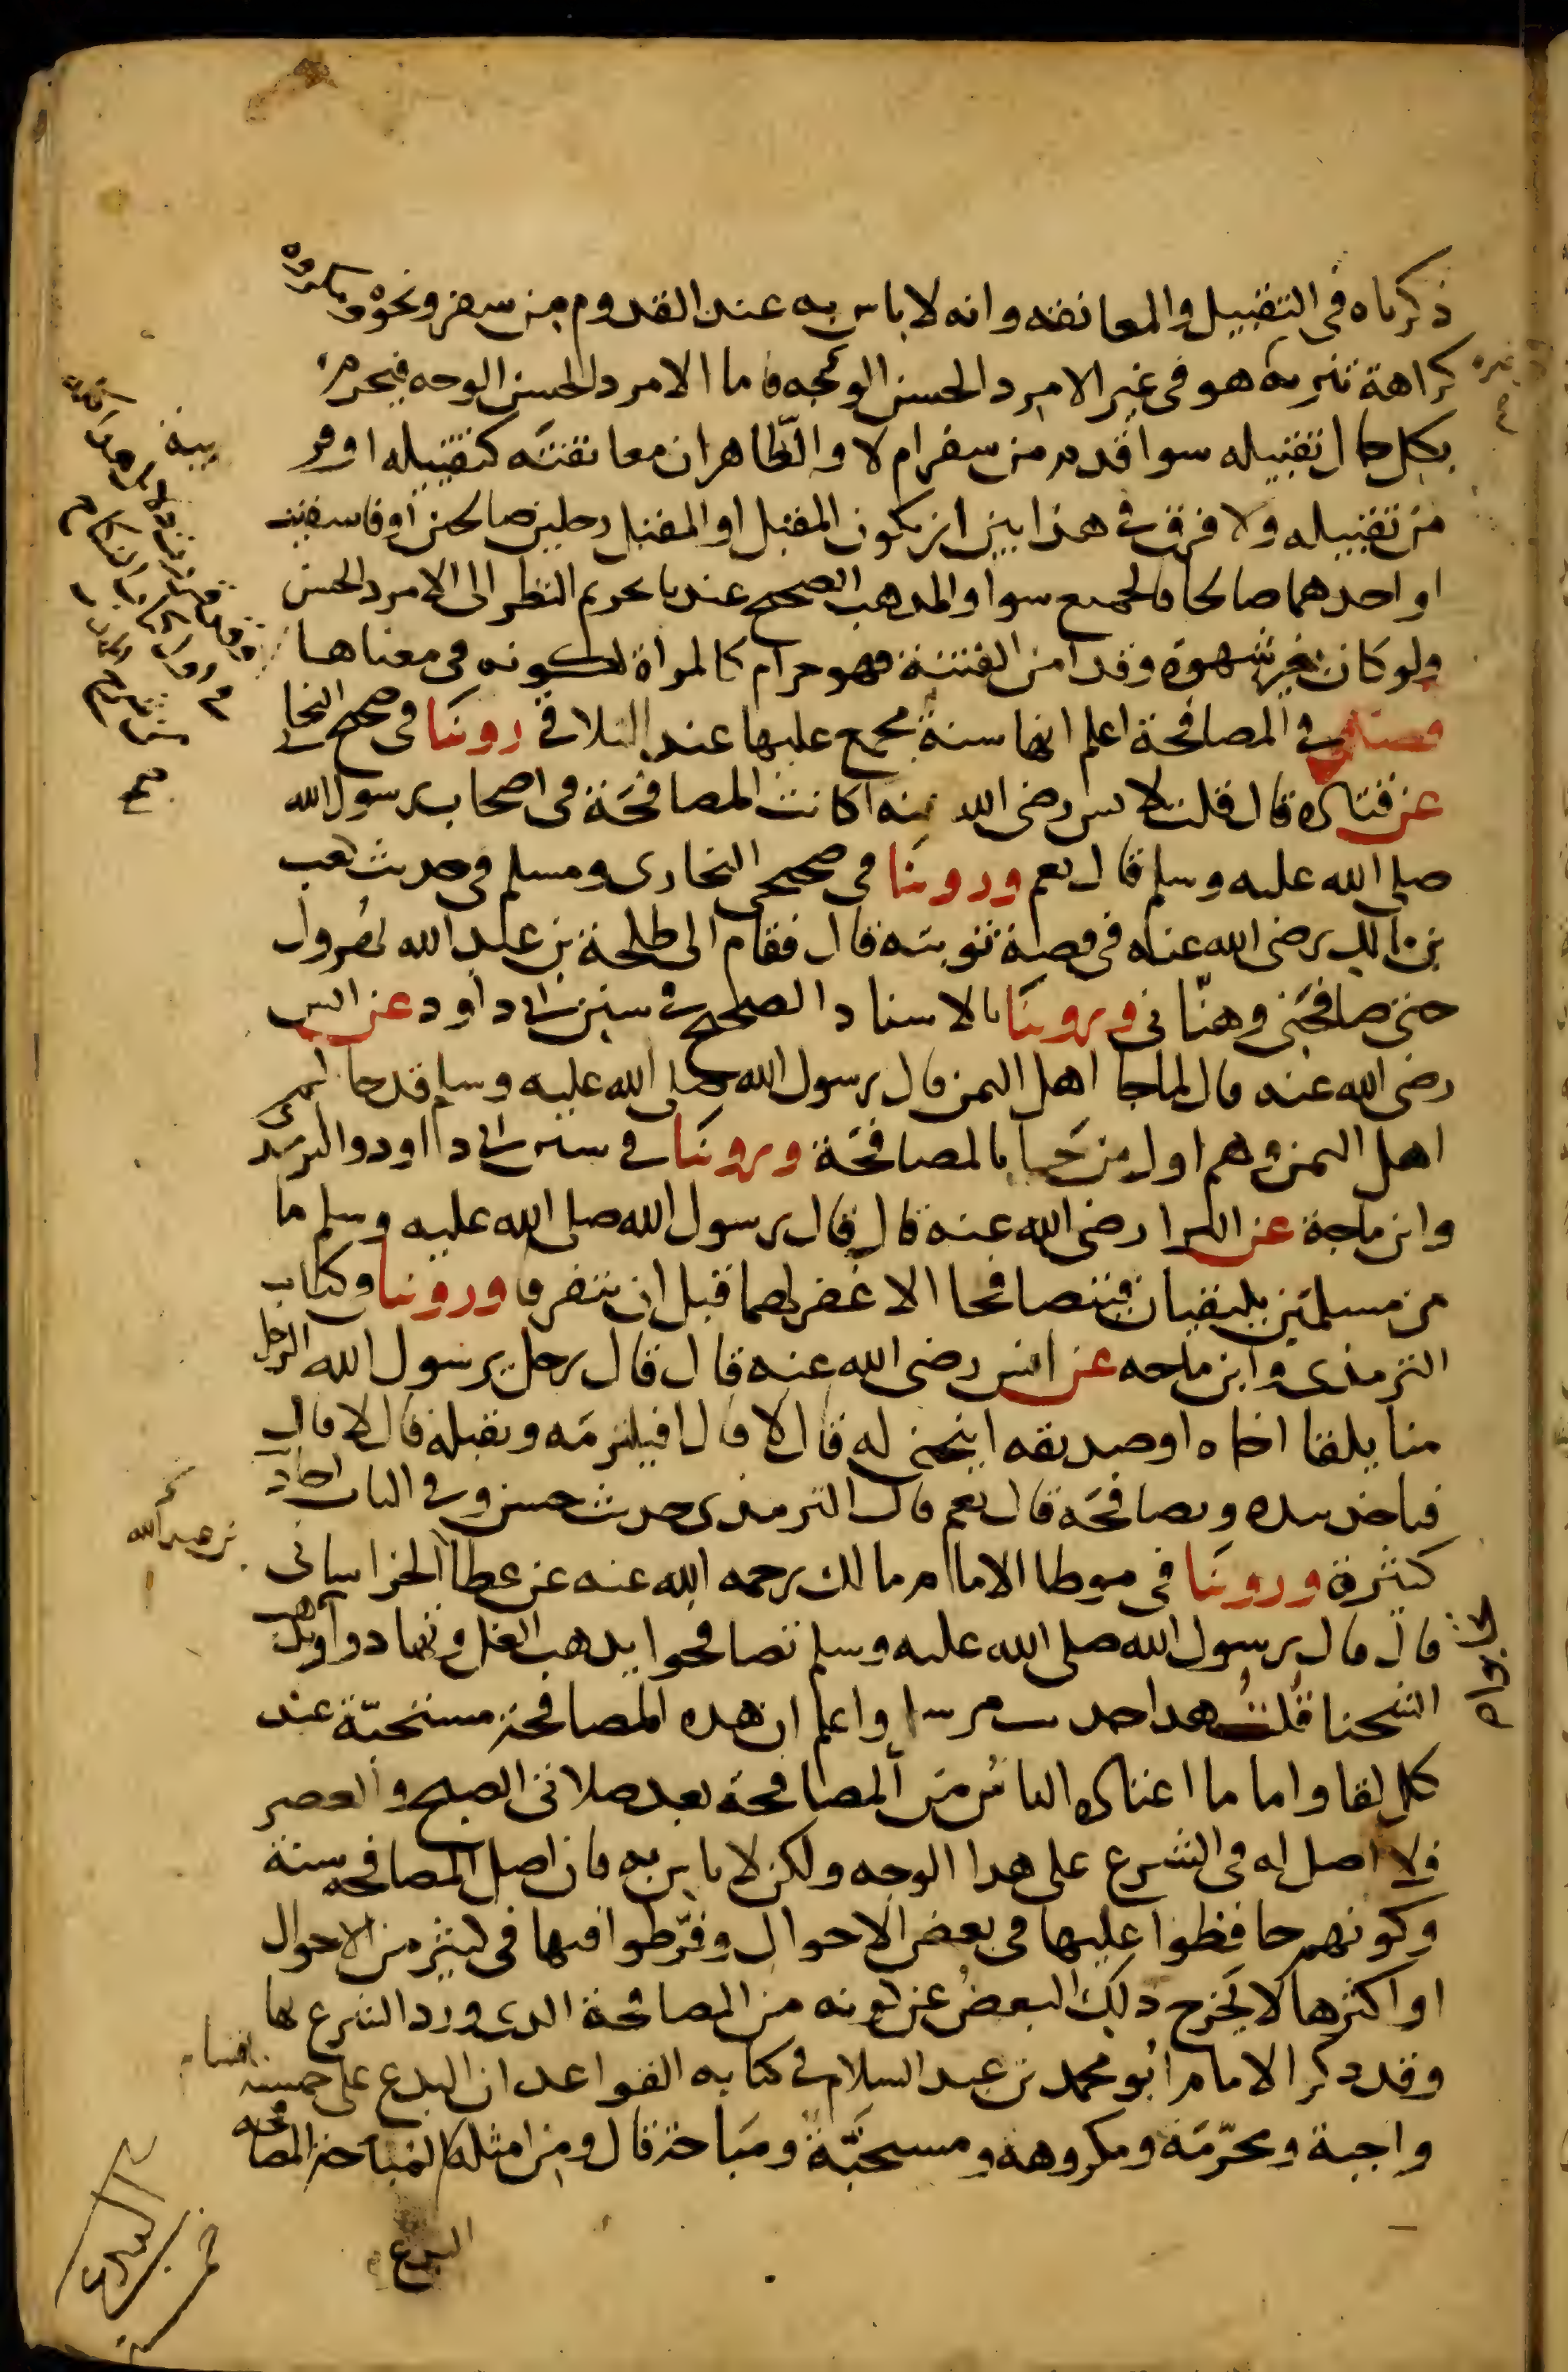 ذكرناه في التقبيل والمعانقه وانه لا باس به عند القدوم من سفر ونحوه ومكروه
كراهة تنزيه هو في غير الامرد الحسن الوجه فاما الامرد الحسن الوجه فيحرم
بكل حال تقبيله سوا قدم من سفر ام لا والظاهر ان معانقته كتقبيله او قر
من تقبيله ولا فرق في هذا بين ان يكون المقبل او المقبل رجلين صالحين او فاسقين
او احدهما صالحا فالجميع سوا والمدهب الصحيح عندنا تحريم النظر الى الامرد الحسن
ولو كان بغير شهوة وقد امن الفتنة فهو حرام كالمراة لكونه في معناها
فصل في المصافحة اعلم انها سنة مجمع عليها عند التلاقي روينا في صحيح البخاري
عن قتاده قال قلت لانس رضي الله عنه اكانت المصافحة في اصحاب رسول الله
صلى الله عليه وسلم قال نعم وروينا في صحيحي البخاري ومسلم في حديث كعب
بن مالك رضي الله عنه في قصة توبته قال فقام الى طلحة بن عبيد الله يهرول
حتى صافحني وهنّاني وروينا بالاسناد الصحيح في سنن ابي داود عن انس
رضي الله عنه قال لما جا اهل اليمن قال رسول الله صلى الله عليه وسلم قد جاكم
اهل اليمن وهم اول من جا بالمصافحة وروينا في سنن ابي دااود والترمذي
وابن ماجة عن البرا رضي الله عنه قال قال رسول الله صلى الله عليه وسلم ما
من مسلمين يلتقيان فيتصافحا الا غفر لهما قبل ان يتفرقا وروينا وكتاب
الترمذي وابن ماجه عن انس رضي الله عنه قال قال رجل يرسول الله الرجل
منا يلقا اخاه او صديقه اينحني له قال لا قال افيلتزمه ويقبله قال لا قال
فياخذ بيده ويصافحه قال نعم قال الترمذي حديث حسن وفي الباب احاديث
كثيرة وروينا في موطا الامام مالك رحمه الله عنه عن عطا الخراساني
بن عبد الله
قال قال رسول الله صلى الله عليه وسلم تصافحوا يدهب الغل وتهادوا وتذهب
الشحنا قلت هدا حديث مرسل واعلم ان هده المصافحة مستحبّة عند
كل لقا واما ما اعتاده الناس من المصافحة بعد صلاتي الصبح والعصر
فلا اصل له في الشرع على هدا الوجه ولكن لا باس به فان اصل المصافحه سنة
وكونهم حافظوا عليها في بعض الاحوال وفرّطوا فيها في كثير من الاحوال
او اكثرها لا يخرج دلك البعض عن كونه من المصافحة الدي ورد الشرع بها
وقد دكر الامام ابو محمد بن عبد السلام في كتابه القواعد ان البدع على خمسه اقسام
واجبة ومحرّمة ومكروهه ومستحبّة ومباحة قال ومن امثلة المباحة المصافحه
البدع